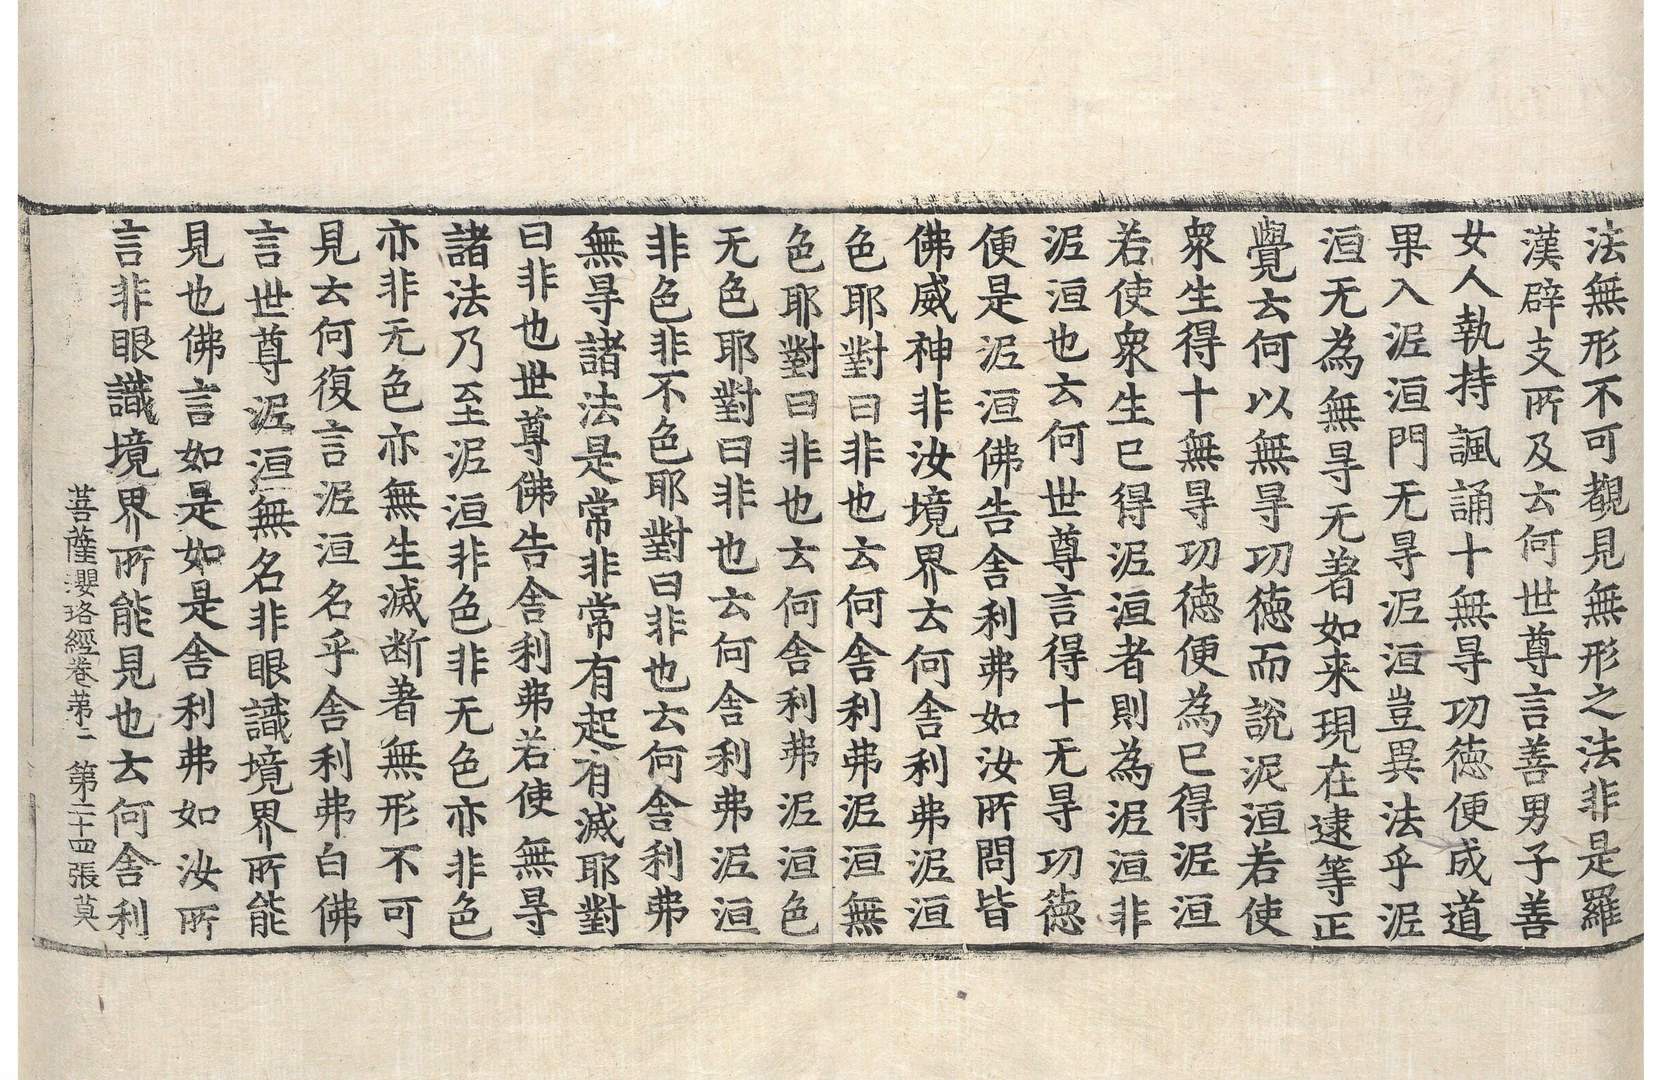 法無形不可覩見無形之法非是羅
漢辟支所及云何世尊言善男子善
女人執持諷誦十無㝵功徳便成道
果入泥洹門无㝵泥洹豈異法乎泥
洹无為無㝵无著如来現在逮等正
覺云何以無㝵功徳而說泥洹若使
衆生得十無㝵功徳便為已得泥洹
若使衆生已得泥洹者則為泥洹非
泥洹也云何世尊言得十无㝵功徳
便是泥洹佛告舍利弗如汝所問皆
佛威神非汝境界云何舍利弗泥洹
色耶對曰非也云何舍利弗泥洹無
色耶對曰非也云何舍利弗泥洹色
无色耶對曰非也云何舍利弗泥洹
非色非不色耶對曰非也云何舍利弗
無㝵諸法是常非常有起有滅耶對
曰非也世尊佛告舍利弗若使無㝵
諸法乃至泥洹非色非无色亦非色
亦非无色亦無生滅断著無形不可
見云何復言泥洹名乎舍利弗白佛
言世尊泥洹無名非眼識境界所能
見也佛言如是如是舍利弗如汝所
言非眼識境界所能見也云何舍利
菩薩瓔珞經卷苐二 第二十四張莫